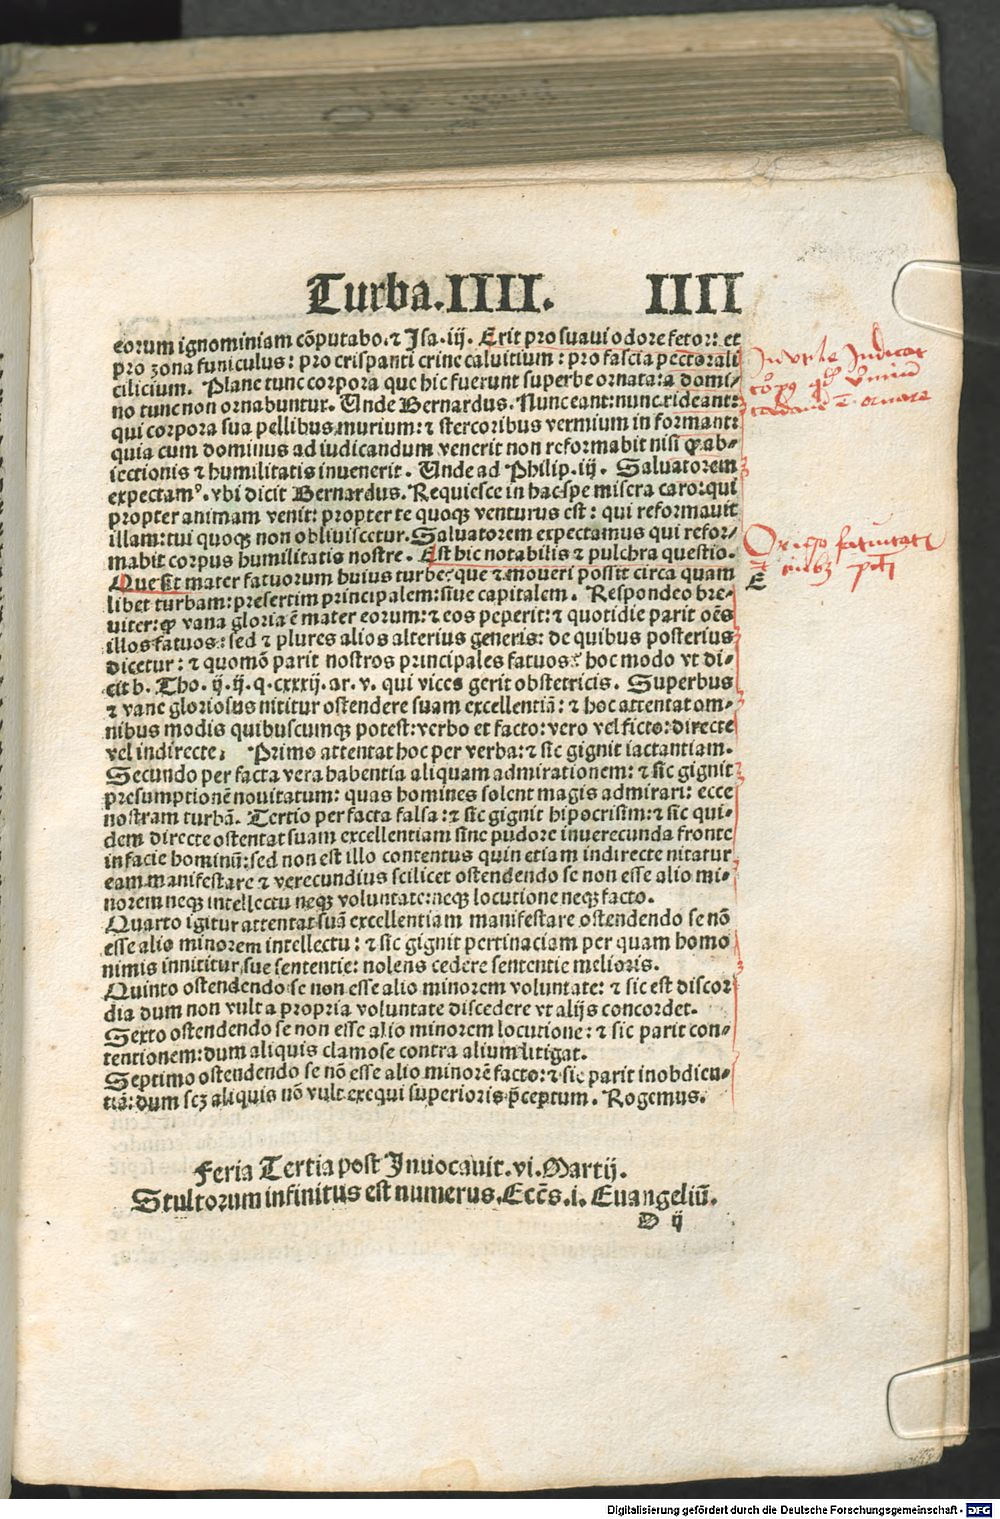 Turba.IIII. IIII
eorum ignominiam cōputabo.⁊ Isa.iij. Erit pro suaui odore fetor: et
pro zona funiculus: pro crispanti crine caluitium: pro fascia pectorali
cilicium. Plane tunc corpora que hic fuerunt superbe ornata:a domi⸗
no tunc non ornabuntur. Unde Bernardus. Nunc eant:nunc rideant:
qui corpora sua pellibus murium: ⁊ stercoribus vermium in formant:
quia cum dominus ad iudicandum venerit non reformabit nisi ꝙ ab⸗
iectionis ⁊ humilitatis inuenerit. Unde ad Philip.iij. Saluatorem
expectamꝰ. vbi dicit Bernardus. Requiesce in hac spe misera caro:qui
propter animam venit: propter te quoqꝫ venturus est: qui reformauit
illam:tui quoqꝫ non obliuiscetur. Saluatorem expectamus qui refor⸗
mabit corpus humilitatis nostre. Est hic notabilis ⁊ pulchra questio.
Que sit mater fatuorum huius turbe:que ⁊ moueri possit circa quam
libet turbam: presertim principalem: siue capitalem. Respondeo bre⸗
uiter:ꝙ vana gloria ē mater eorum:⁊ eos peperit:⁊ quotidie parit oēs
illos fatuos: sed ⁊ plures alios alterius generis: de quibus posterius
dicetur: ⁊ quomō parit nostros principales fatuos: hoc modo vt di⸗
cit b. Tho. ij.ij.q.cxxxij.ar.v. qui vices gerit obstetricis. Superbus
⁊ vane gloriosus nititur ostendere suam excellentiā: ⁊ hoc attentat om⸗
nibus modis quibuscumqꝫ potest:verbo et facto:vero vel ficto:directe
vel indirecte: Primo attentat hoc per verba:⁊ sic gignit iactantiam.
Secundo per facta vera habentia aliquam admirationem: ⁊ sic gignit
presumptionē nouitatum: quas homines solent magis admirari: ecce
nostram turbā. Tertio per facta falsa:⁊ sic gignit hipocrisim:⁊ sic qui⸗
dem directe ostentat suam excellentiam sine pudore inuerecunda fronte
in facie hominū:sed non est illo contentus quin etiam indirecte nitatur
eam manifestare ⁊ verecundius scilicet ostendendo se non esse alio mi⸗
norem neqꝫ intellectu neqꝫ voluntate:neqꝫ locutione neqꝫ facto.
Quarto igitur attentat suā excellentiam manifestare ostendendo se nō
esse alio minorem intellectu: ⁊ sic gignit pertinaciam per quam homo
nimis innititur sue sententie: nolens cedere sententie melioris.
Quinto ostendendo se non esse alio minorem voluntate: ⁊ sic est discor
dia dum non vult a propria voluntate discedere vt alijs concordet.
Sexto ostendendo se non esse alio minorem locutione: ⁊ sic parit con⸗
tentionem:dum aliquis clamose contra alium litigat.
Septimo ostendendo se nō esse alio minorē facto:⁊ sic parit inobdien⸗
tiā: dum scꝫ aliquis nō vult exequi superioris p̄ceptum. Rogemus.
E
Feria Tertia post Inuocauit.vi.Martij.
Stultorum infinitus est numerus. Eccēs.i. Euangeliū.
D ij
Digitalisierung gefördert durch die Deutsche Forschungsgemeinschaft - DFG